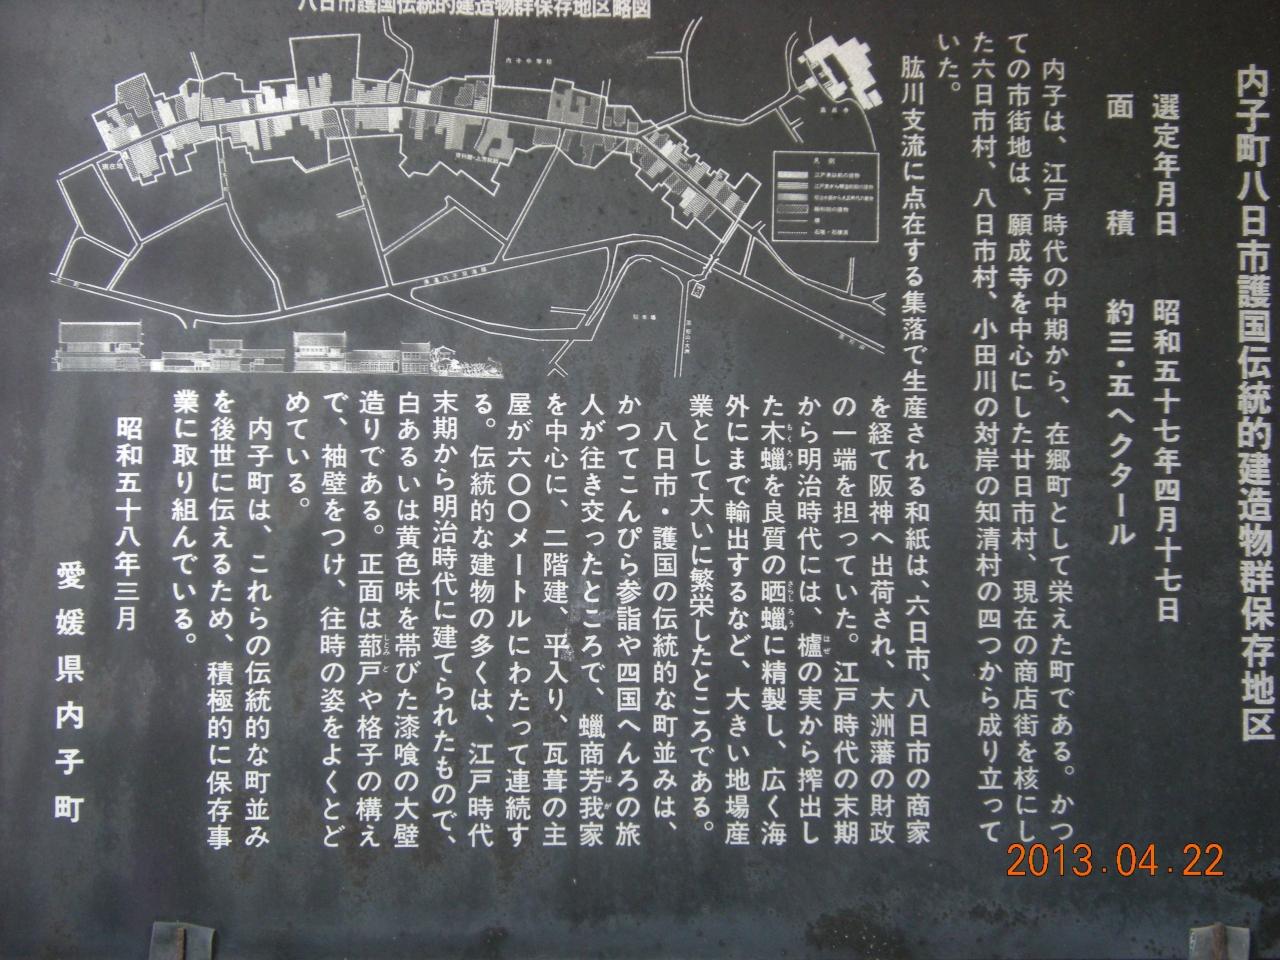 内子町八日市護国伝統的建造物群保存地区
選定年月日　昭和五十七年四月十七日
面　　積　　約三・五ヘクタール
内子は、江戸時代の中期から、在郷町として栄えた町である。かつ
ての市街地は、願成寺を中心にした廿日市村、現在の商店街を核にし
た六日市村、八日市村、小田川の対岸の知清村の四つから成り立って
いた。
肱川支流に点在する集落で生産される和紙は、六日市、八日市の商家
を経て阪神へ出荷され、大洲藩の財政
の一端を担っていた。江戸時代の末期
から明治時代には、櫨の実から搾出し
はぜ
た木蠟を良質の晒蠟に精製し、広く海
もくろう　さらしろう
外にまで輸出するなど、大きい地場産
業として大いに繁栄したところである。
八日市・護国の伝統的な町並みは、
かつてこんぴら参詣や四国へんろの旅
人が往き交ったところで、蠟商芳我家
はが
を中心に、二階建、平入り、瓦葺の主
屋が六〇〇メートルにわたって連続す
る。伝統的な建物の多くは、江戸時代
末期から明治時代に建てられたもので、
白あるいは黄色味を帯びた漆喰の大壁
造りである。正面は蔀戸や格子の構え
しとみど
で、袖壁をつけ、往時の姿をよくとど
めている。
内子町は、これらの伝統的な町並み
を後世に伝えるため、積極的に保存事
業に取り組んでいる。
昭和五十八年三月
愛媛県内子町
八日市護国伝統的建造物群保存地区略図
内子中学校
現在地
凡例
駐車場
2013.04.22